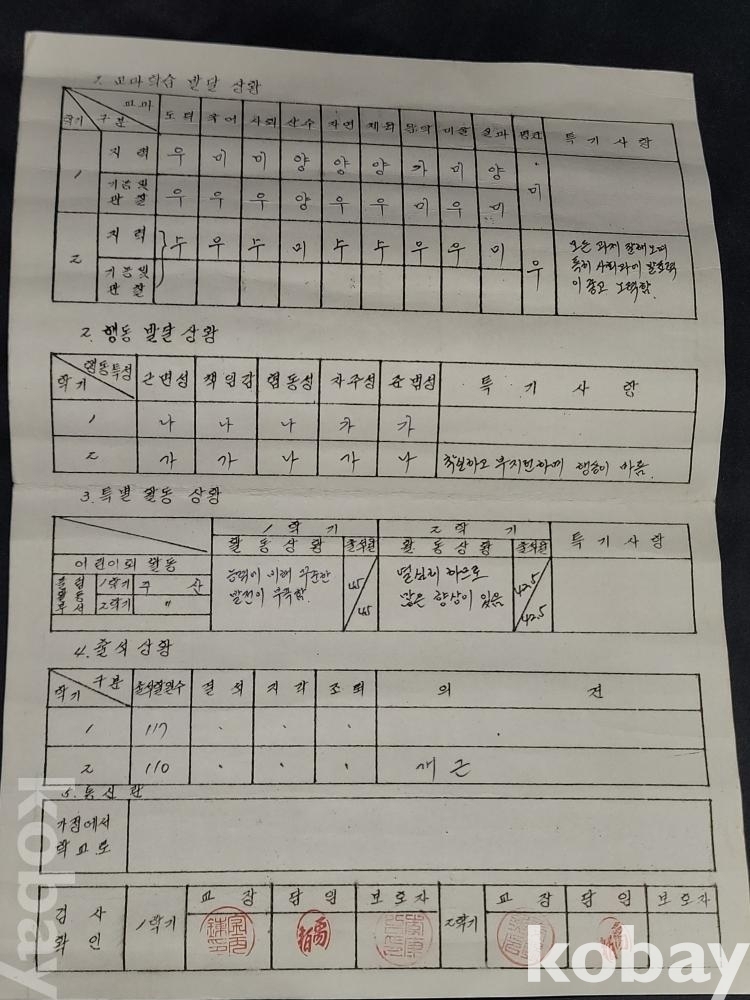 1. 교과학습 발달 상황
교과
학기 구분 도덕 국어 사회 산수 자연 체육 음악 미술 실과 평균 특기사항
1 지력 우 미 미 양 양 양 가 미 양 미
기능및 관찰 우 우 우 양 우 우 미 우 미
2 지력 수 우 수 미 수 수 우 우 미 우
기능및 관찰
모든 과제 잘해오며
특히 사회과에 발표력
이 좋고 노력함.
2. 행동 발달 상황
학기 행동특성 근면성 책임감 협동성 자주성 준법성 특기사항
1 나 나 나 가 가
2 가 가 나 가 나 착실하고 부지런하며 행동이 바름.
3. 특별 활동 상황
1학기 2학기
활동상황 출석란 활동상황 출석란 특기사항
어린이회 활동
클럽활동부서 1학기 주산
2학기 〃
능력에 비해 꾸준한
발전이 부족함.
45/45
열심히 하므로
많은 향상이 있음
42.5/42.5
4. 출석 상황
학기 구분 출석할일수 결석 지각 조퇴 의견
1 117 · · ·
2 110 · · · 개근
5. 통신란
가정에서
학교로
검사
확인
1학기 교장 담임 보호자 2학기 교장 담임 보호자
kobay
kobay
kobay